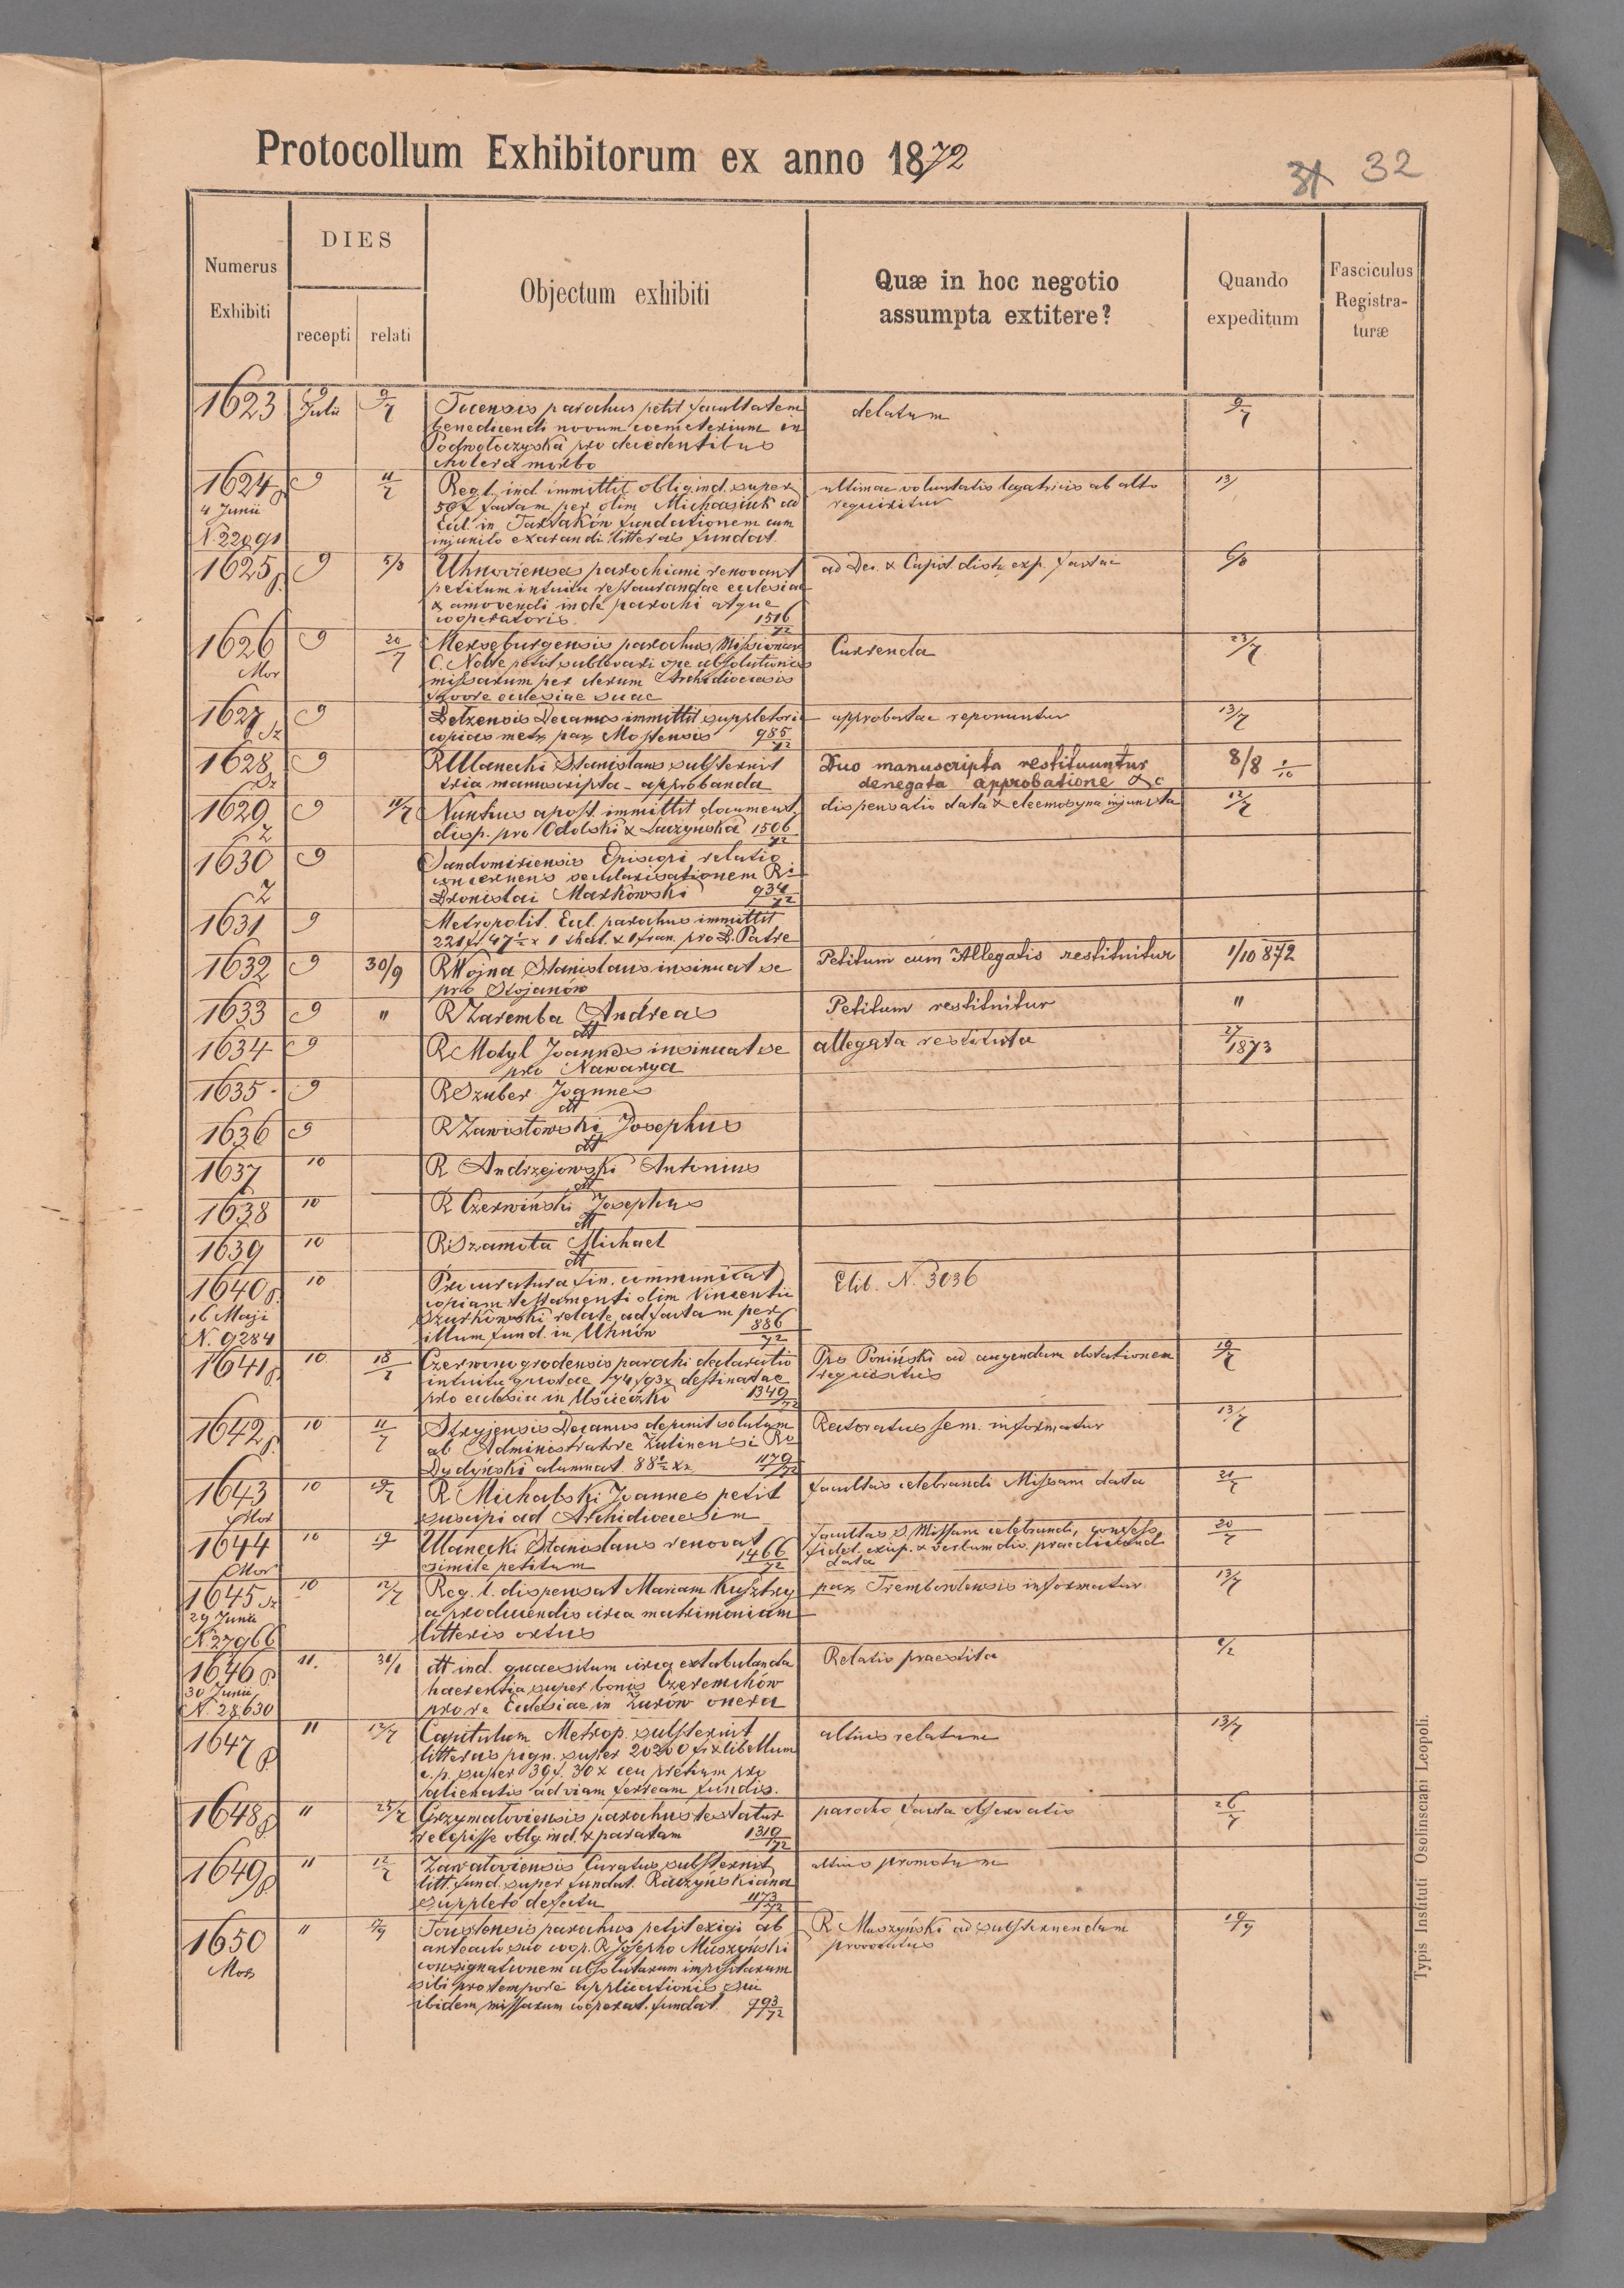 Protocollum Exhibitorum ex anno 1872
31 32
Numerus Exhibiti
DIES
recepti relati
Objectum exhibiti
Quæ in hoc negotio assumpta extitere?
Quando expeditum
Fasciculus Registra-turæ
1623 9 Julii 9/7 parochus petit facultatem delatum 9/7
benedicendi novum coemeterium in
Podwołoczyska pro decedentibus
cholera morbo
1624 9 11/7 Reg. t. ind. immittit oblig. ind. super ultimae voluntatis legatricis ab alto 13/
4 Junii 50 f factam per olim Michasiuk ad requiritur
N. 22991 Eccl. in Tartaków fundationem cum
injuncto exarandi litteras fundat.
1625 p. 9 5/8 Uhnovienses parochiani renovant ad Dec. & Capit. distr. exp. factae 6/8
petitum intuitu restaurandae ecclesiae
& amovendi inde parochi atque
cooperatoris 1516/72
1626 9 20/7 Merseburgensis parochus Currenda 23/7
Mor C. Nolte petit sublevari ope absolutionis
missarum per clerum Archidioecesis
favore ecclesiae suae
1627 9 Betzensis Decanus immittit suppletorie approbatae reponuntur 13/7
Sz copias metr. par. Mostensis 985/72
1628 9 R Ulanecki Stanislaus substernit Duo manuscripta restituuntur 8/8 1/10
Sz tria manuscripta approbanda denegata approbatione &c
1629 9 11/7 Nuntius apost. immittit document. dispensatio data & eleemosyna injuncta 12/7
Z disp. pro Odolski & Luczynska 1506/72
1630 9 Sandomiriensis Episcopi relatio
Z concernens secularisationem Ri
Bronislai Markowski 934/72
1631 9 Metropolit. Eccl. parochus immittit
221 f 47 1/2 x 1 thal. & 1 fran. pro S. Patre
1632 9 30/9 R Wojna Stanislaus insinuat se Petitum cum Allegatis restituitur 1/10 872
pro Stojanów
1633 9 " R Zaremba Andreas Petitum restituitur "
dtt
1634 9 R Motyl Joannes insinuat se allegata restituta 27/1873
pro Nawarya
1635 9 R Szuber Joannes
dtt
1636 9 R Zawistowski Josephus
dtt
1637 10 R Andrzejowski Antonius
dtt
1638 10 R Czerwiński Josephus
dtt
1639 10 R Szamota Michael
dtt
1640 p. 10 Procuratura fin. communicat Elib. N. 3036
16 Maji copiam testamenti olim Vincentii
N. 9284 Szurkowski relate ad factam per
illum fund. in Uhnów 886/72
1641 p. 10 18/7 Czerwonogrodensis parochi declaratio Pro Poniński ad augendam dotationem 19/7
intuitu quotae 174 f 93 x destinatae requisitus
pro ecclesia in Uścieczko 1349/72
1642 p. 10 11/7 Stryjensis Decanus deponit solutum Rectoratus sem. informatur 13/7
ab Administratore Zulinensi Ro
Dydyński alumnat. 88 1/2 xr 1179/72
1643 10 19/7 R Michalski Joannes petit facultas celebrandi Missam data 21/7
Mor suscipi ad Archidioecesim
1644 10 19 Ulanecki Stanislaus renovat facultas S. Missam celebrandi, confess.
Mor simile petitum 1466/72 fidel. excip. & verbum div. praedicandi 20/7
data
1645 Sz 10 12/7 Reg. t. dispensat Mariam par. Trembowlensis informatur 13/7
29 Junii a producendis circa matrimonium
N. 27966 litteris ortus
1646 p. 11. dtt ind. quaesitum circa extabulanda Relatio praestita
30 Junii haerentia super bonis Czeremchów
N. 28630 pro re Ecclesiae in Żurów onera
1647 p. 11 12/7 Capitulum Metrop. substernit altius relatum 13/7
litteras pign. super 20200 f & libellum
c. p. super 39 f. 30 x ceu pretium pro
alienatis ad viam ferream fundis.
1648 p " 25/7 Grzymałoviensis parochus testatur parocho facta observatio 26/7
recepisse oblig. ind. & paratam 1319/72
1649 p " 12/7 Zawałoviensis Curatus substernit altius promotum
litt. fund. super fundat. Raczynskiana
suppleto defectu 1173/72
1650 " Toustensis parochus petit exigi ab R Muszyński ad substernendum
Mor antecessore suo coop. R Josepho Muszyński provocatus
consignationem absolutarum impositarum
sibi pro tempore applicationis suae
ibidem missarum cooperat. fundat. 993/72
Typis Instituti Ossolinsciani Leopoli.